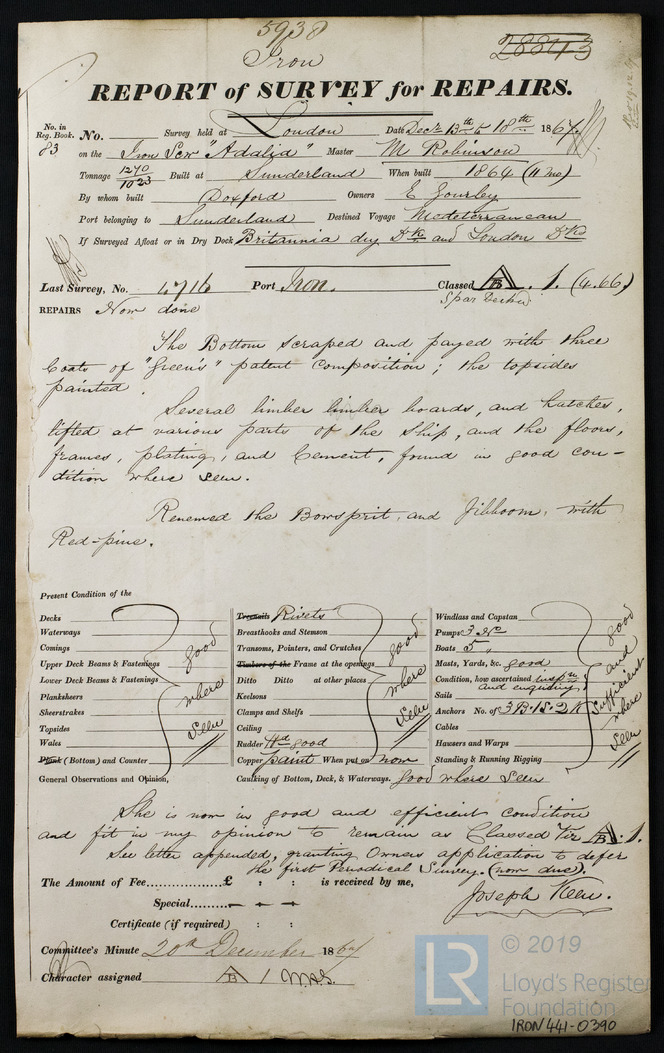 5938
28843
Iron
REPORT of SURVEY for REPAIRS.
No. in Reg. Book.
83
No. Survey held at London Date Decr 13th to 18th 1867
on the Iron Scw "Adalia" Master M Robinson
Tonnage 1270/1023 Built at Sunderland When built 1864 (11 mo)
By whom built Doxford Owners E Gourley
Port belonging to Sunderland Destined Voyage Mediterranean
If Surveyed Afloat or in Dry Dock Britannia dry Dk and London Dks
Last Survey, No. 4716 Port Iron. Classed A B . 1. (4.66)
Spar Decked
REPAIRS Now done
The Bottom scraped and payed with three
Coats of "Green's" patent composition; the topsides
painted.
Several limber limber boards, and hatches,
lifted at various parts of the Ship, and the floors,
frames, plating, and Cement, found in good con-
dition where seen.
Renewed the Bowsprit, and Jibboom, with
Red-pine.
Present Condition of the
Decks
Waterways
Comings
Upper Deck Beams & Fastenings
Lower Deck Beams & Fastenings
Planksheers
Sheerstrakes
Topsides
Wales
Plank (Bottom) and Counter
good
where
seen
General Observations and Opinion,
Treenails Rivets
Breasthooks and Stemson
Transoms, Pointers, and Crutches
Timbers of the Frame at the openings
Ditto Ditto at other places
Keelsons
Clamps and Shelfs
Ceiling
good
where
seen
Rudder good
Copper paint When put on now
Caulking of Bottom, Deck, & Waterways. good where seen
Windlass and Capstan
Pumps 3 No
Boats 5 "
Masts, Yards, &c. good
Condition, how ascertained inspn
and enquiring
Sails
Anchors No. of 3 B. 1 S. 2 K
Cables
Hawsers and Warps
Standing & Running Rigging
good
and
sufficient
where
seen
She is now in good and efficient condition
and fit in my opinion to remain as Classed Viz A B . 1.
See letter appended, granting Owners application to defer
the first Periodical Survey. (now due).
The Amount of Fee £ : : is received by me,
Special
Joseph Keen.
Certificate (if required) : :
Committee's Minute 20th December 1867
Character assigned A B 1
LR
© 2019
Lloyd's Register
Foundation
IRON441-0390